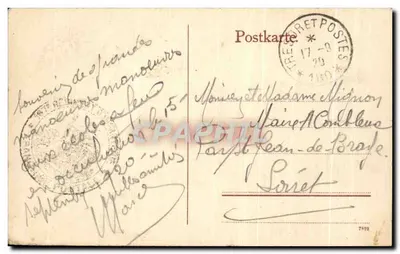 Postkarte
TRESOR ET POSTES
*
17-9
20
* 140 *
Souvenir de grandes
manoeuvres manoeuvres
aux écoles à feu
en occupation le 15
Septembre 1920
Mille amitiés
Marcel
Monsieur et Madame Mignon
Maire à Combleux
Par St Jean-de-Braye
Loiret
CPARAMA.COM